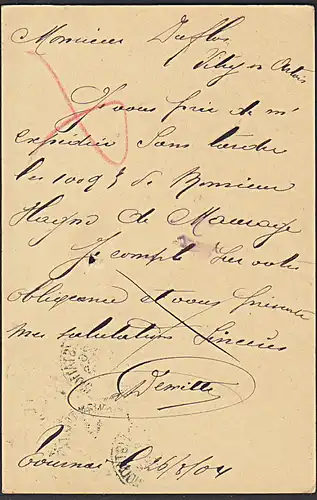 Monsieur Duflos
Vitry en Artois
Je vous prie de m'
expédier sans tarder
les 100 q de Monsieur
de Maurage
Je compte sur votre
obligeance et vous présente
mes salutations sincères
Tournai le 26/8/04